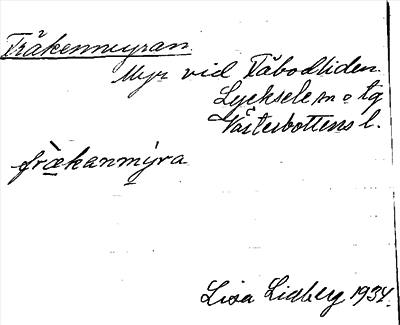 Fräkenmyran.
Myr vid Fäbodliden
Lycksele sn o tg
Västerbottens l.
frækanmýra
Lisa Lidberg 1934.